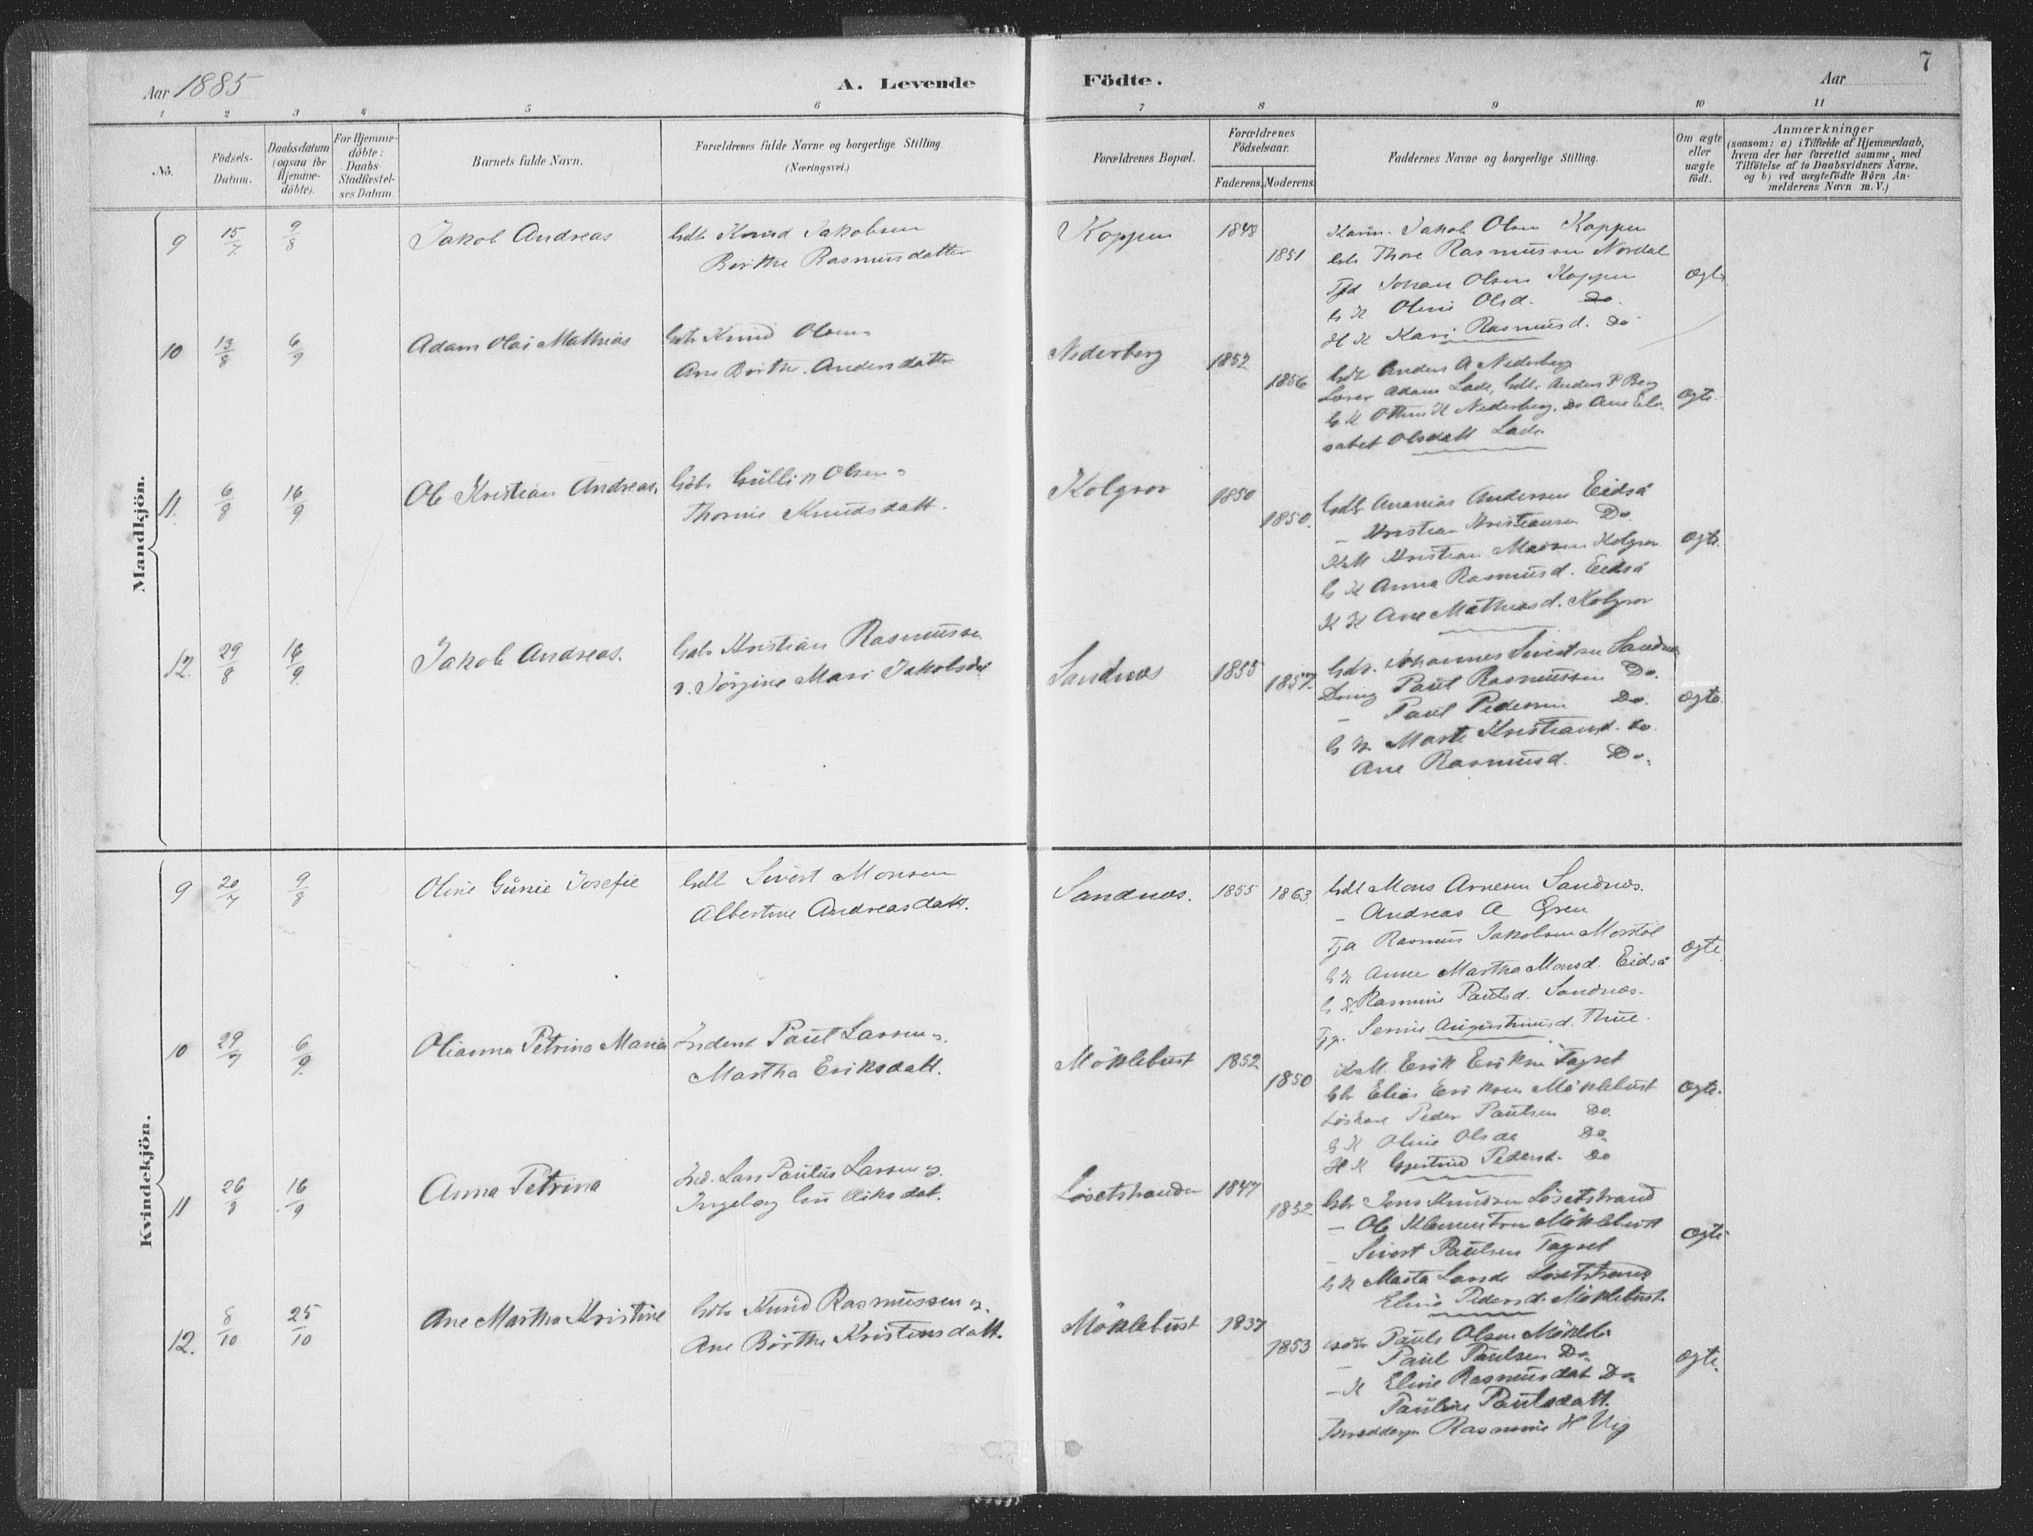 7
Aar 1885
A. Levende Födte. Aar
1 2 3 4 5 6 7 8 9 10 11
No. Födsels-Datum. Daabsdatum (ogsaa for Hjemme-döbte). For Hjemme-döbte: Daabs Stadfæstel-ses Datum. Barnets fulde Navn. Forældrenes fulde Navne og borgerlige Stilling (Næringsvei.) Forældrenes Bopæl. Forældrenes Födselsaar. Faderens. Moderens. Faddernes Navne og borgerlige Stilling. Om ægte eller uægte födt. Anmærkninger (saasom: a) i Tilfælde af Hjemmedaab, hvem der har forrettet samme, med Tilföielse af to Daabsvidners Navne, og b) ved uægtefödte Börn An-melderens Navn m. V.)
Mandkjön.
9 15/7 9/8 Jakob Andreas Gdb Knud Jakobsen
Berthe Rasmusdatter
Koppen 1848 1851
Jakob Olsen Koppen
Thore Rasmussen Nordal
Johan Olsen Koppen
G K Oline Olsd. Do.
H K Kari Rasmusd. Do
ægte
10 13/8 6/9 Adam Olai Mathias Gdb Knud Olsen
Ane Berthe Andersdatter
Nederberg 1852 1856
Gdb Anders A Nederberg
Lærer Adam Lade, Gdb. Anders P Berg
G K Nederberg. Do Ane Eli-
sabet Olsdatt Lade
ægte.
11. 6/8 16/9 Ole Kristian Andreas. Gdb Gullik Olsen
Thomine Knudsdatt.
Kolgrov 1850 1850.
Gdb Ananias Andersen Eidså
– Kristian Kristiansen Do.
K M Kristian Kolgrov
G K Anna Rasmusd. Eidså
K K Ane Mathiasd. Kolgrov
ægte.
12. 29/8 16/9 Jakob Andreas. Gdb Kristian Rasmussen
Jörgine Mari Jakobsdat
Sandnæs 1855 1857.
Gdb. Johannes Sivertsen Sandnæs
Paul Rasmussen Do.
– Paul Pedersen Do.
G K Marte Kristiansd. Do.
Ane Rasmusd. Do.
ægte.
Kvindekjön.
9 20/7 9/8 Oline Gurie Josefie Gdb Sivert Monsen
Albertine Andreasdatt.
Sandnæs. 1855 1863
Gdb Mons Arnesen Sandnæs.
– Andreas A
Rasmus Jakobsen
G K Anne Martha Monsd. Eidså
G K Rasmine Paulsd. Sandnæs.
Serine Augustinusd. Thue.
ægte.
10 29/7 6/9 Olianna Petrina Maria Inderst Paul Larsen
Martha Eriksdatt.
Möklebust 1852 1850
K M Erik Eriksen Tagset
Gb Elias Eriksen Möklebust
Löskarl Peder Paulsen Do.
G K Oline Olsda Do.
H K Gjertrud Pedersd. Do
ægte.
11 26/8 16/9 Anna Petrina Ind. Lars Paulus Larsen
Ingeborg Gulliksdat.
Løsetstranden 1847 1852
Gb Jens Knudsen Løsetstrand
– Ole Klementsen Möklebust
– Sivert Paulsen Tagset
G K Marta Løsetstrand
Eline Pedersd. Möklebust.
ægte
12. 8/10 25/10 Ane Martha Kristine Gdb Knud Rasmussen
Ane Börthe Kristensdatt.
Möklebust 1837 1853
Gdb Paul Olsen
– Paul Paulsen Do.
– K Eline Rasmusdat Do.
Pauline Paulsdatt.
Rasmine H Vig
ægte.